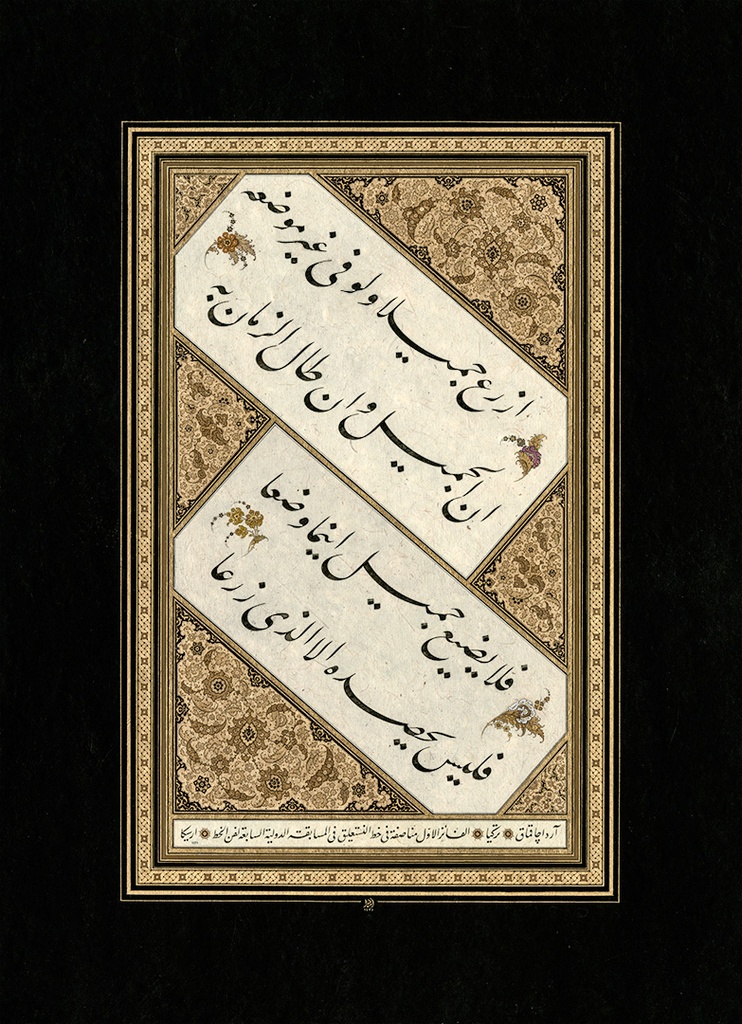 ازرع جميلا ولو في غير موضعه
فلا يضيع جميل اينما وضعا
ان الجميل وان طال الزمان به
فليس يحصده الا الذي زرعا
آردا چاقماق ۞ تركيا ۞ الفائز الاول مناصفة في خط النستعليق في المسابقة الدولية السابعة لفن الخط ۞ ارسيكا